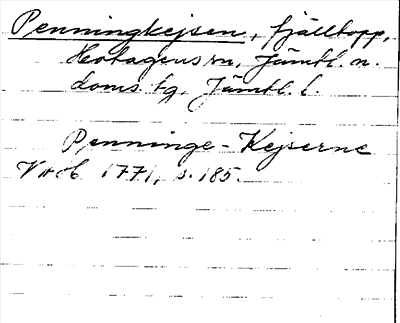 Penningkejsen, fjälltopp,
Hotagens sn, Jämtl. n.
doms. tg, Jämtl. l.
Penninge-Kejserne
Vrob 1771, s. 185.